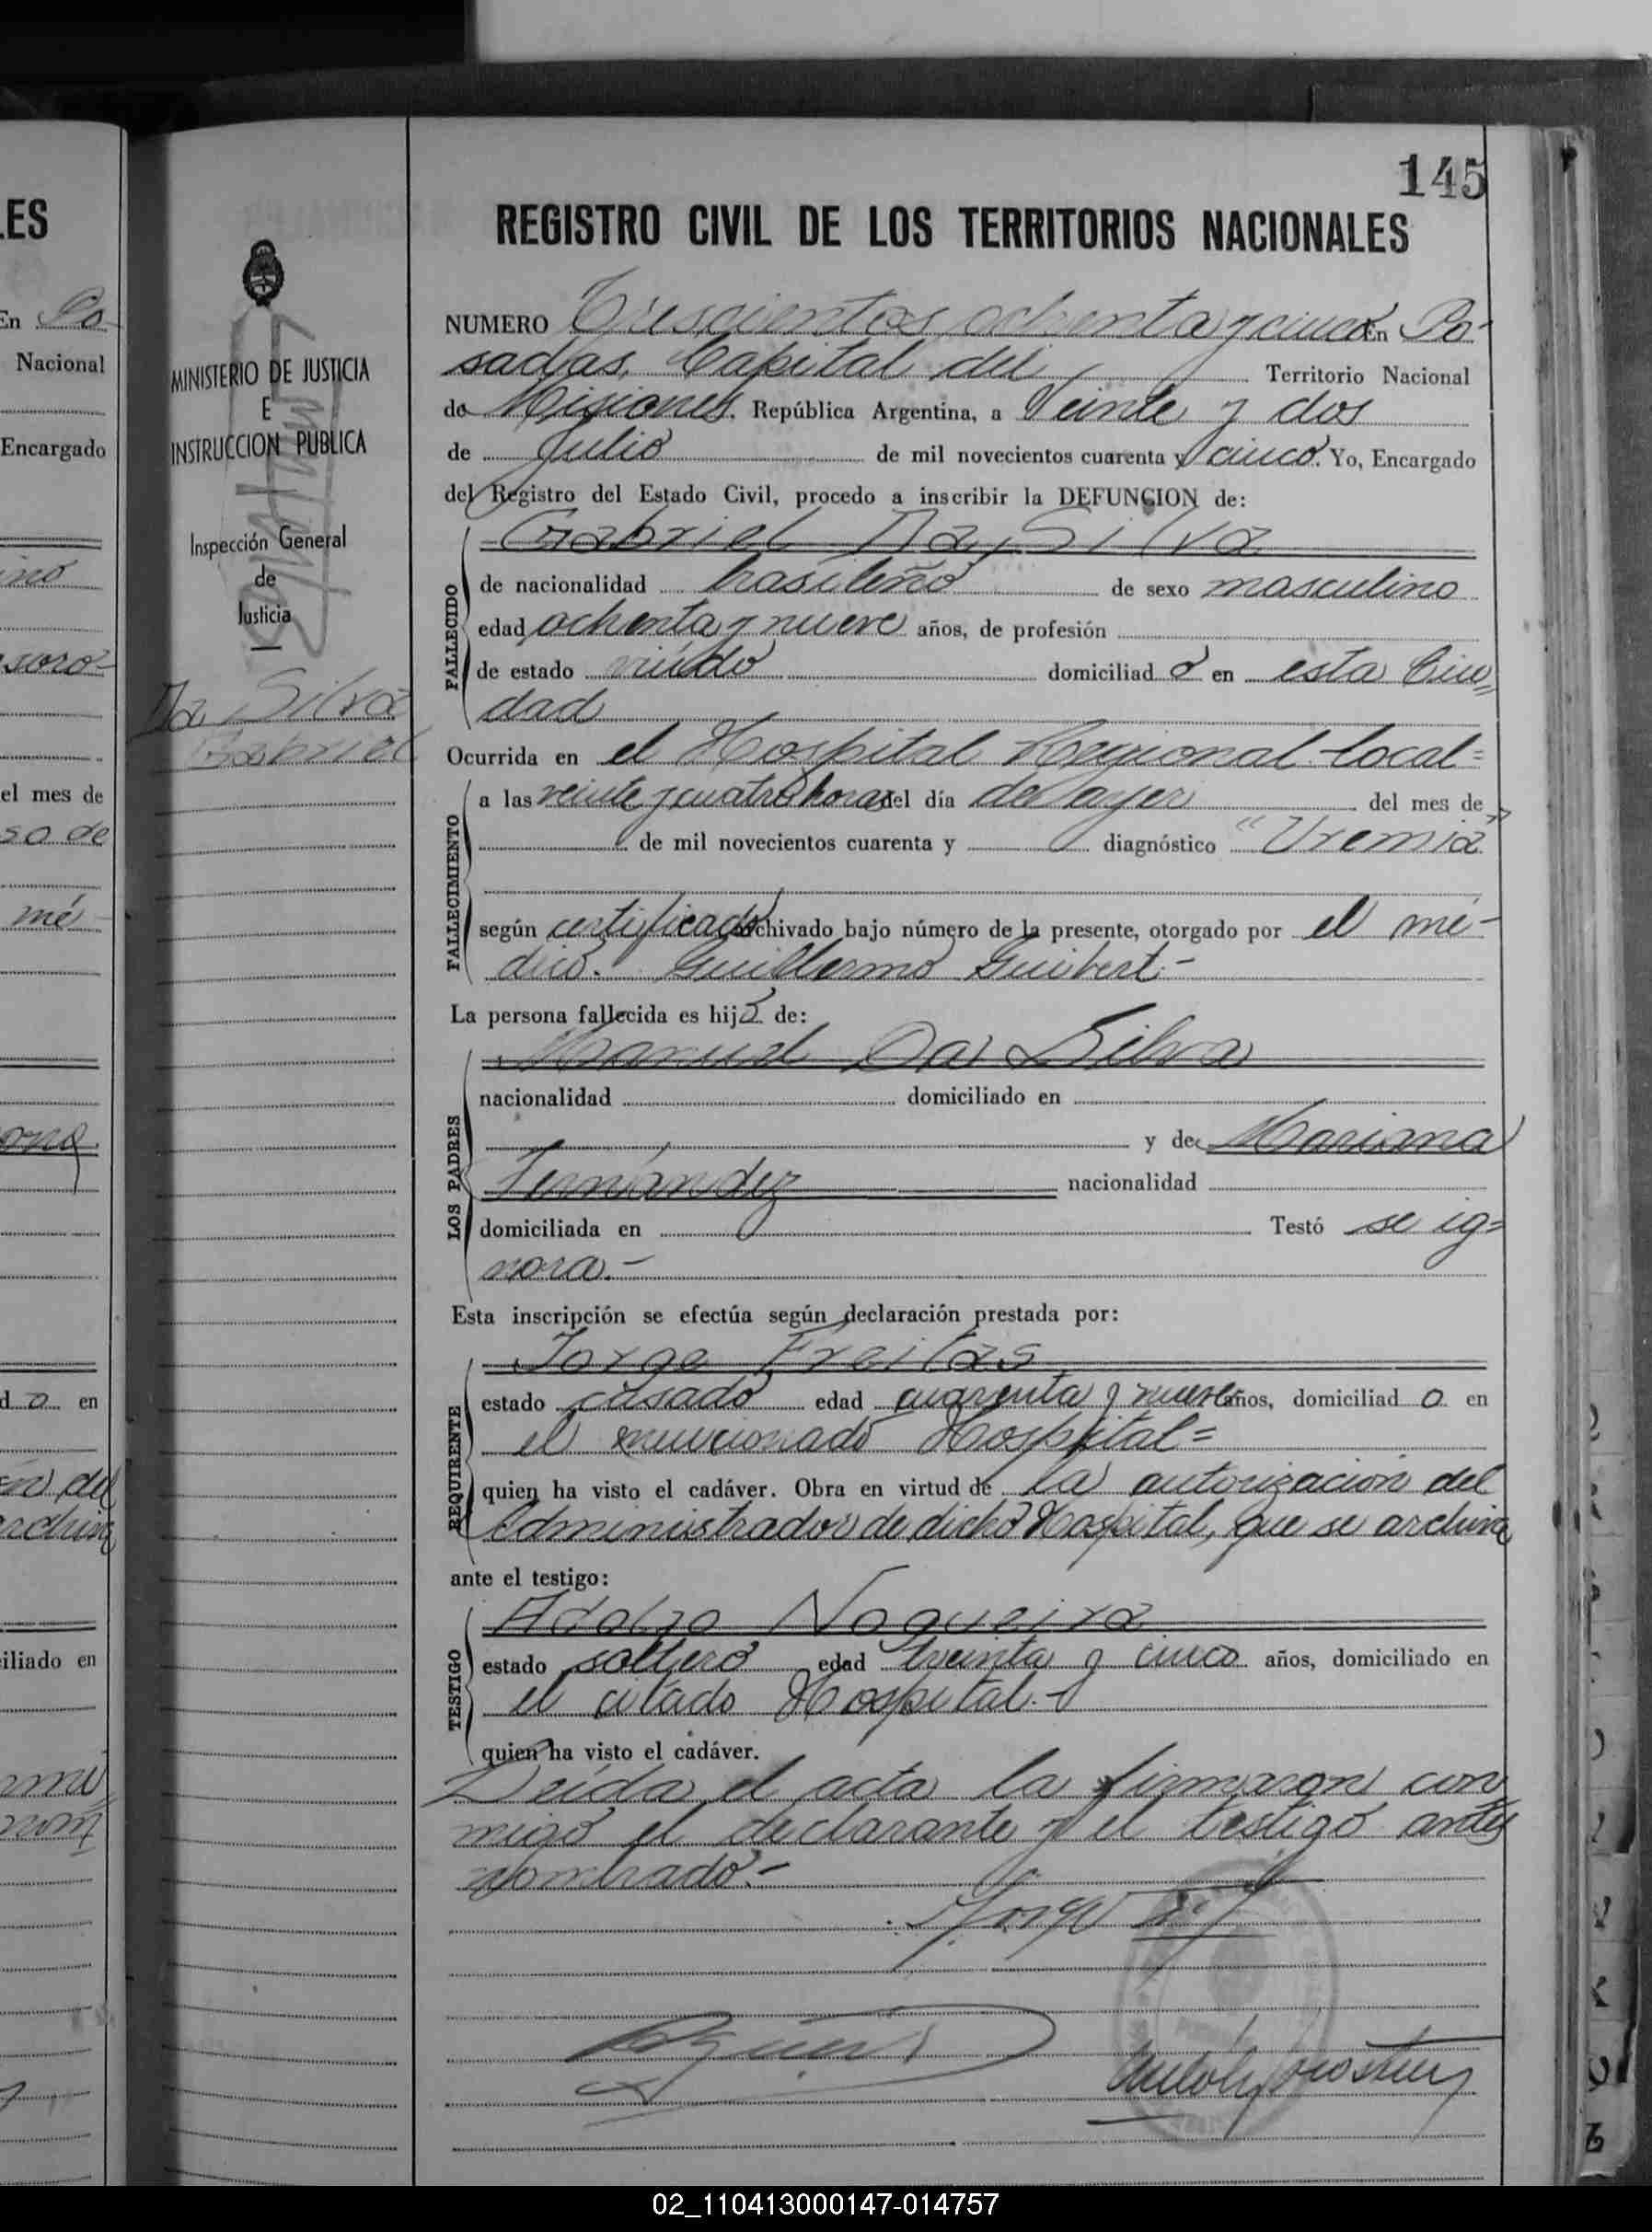 145
REGISTRO CIVIL DE LOS TERRITORIOS NACIONALES
NUMERO Trescientos ochenta y cinco En Po-
sadas, Capital del Territorio Nacional
de Misiones, República Argentina, a Veinte y dos
de Julio de mil novecientos cuarenta y cinco. Yo, Encargado
del Registro del Estado Civil, procedo a inscribir la DEFUNCION de:
Gabriel Da Silva
FALLECIDO
de nacionalidad brasileño de sexo masculino
edad ochenta y nueve años, de profesión
de estado viudo domiciliad o en esta Ciu-
dad
Ocurrida en el Hospital Regional local=
FALLECIMIENTO
a las veinte y cuatro horas del día de ayer del mes de
de mil novecientos cuarenta y diagnóstico "Uremia"
según certificado archivado bajo número de la presente, otorgado por el mé-
dico. Guillermo Guibert.-
La persona fallecida es hijo de:
LOS PADRES
Manuel Da Silva
nacionalidad domiciliado en
y de Mariana
Fernández nacionalidad
domiciliada en Testó se ig=
nora.-
Esta inscripción se efectúa según declaración prestada por:
REQUIRENTE
Jorge Freitas
estado casado edad cuarenta y nueve años, domiciliad o en
el mencionado Hospital=
quien ha visto el cadáver. Obra en virtud de la autorización del
Administrador de dicho Hospital, que se archiva
ante el testigo:
TESTIGO
Adolfo Nogueira
estado soltero edad treinta y cinco años, domiciliado en
el citado Hospital.-
quien ha visto el cadáver.
Leída el acta la firmaron con
migo el declarante y el testigo antes
nombrado.-
Jorge
MINISTERIO DE JUSTICIA
E
INSTRUCCION PUBLICA
Inspección General
de
Justicia
Da Silva
Gabriel
LES
En Po-
Nacional
Encargado
el mes de
so de
mé-
d o en
iliado en
02_110413000147-014757